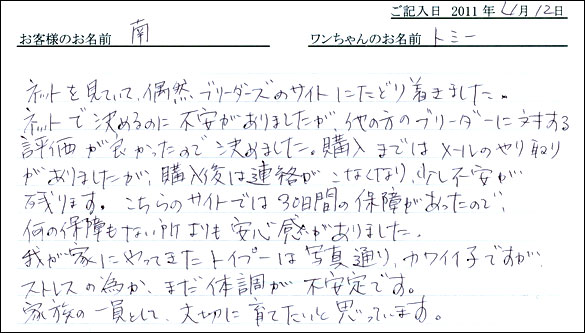 ご記入日 2011年4月12日
お客様のお名前 南 ワンちゃんのお名前 トミー
ネットを見ていて、偶然ブリーダーズのサイトにたどり着きました。
ネットで決めるのに不安がありましたが他の方のブリーダーに対する
評価が良かったので決めました。購入まではメールのやり取り
がありましたが、購入後は連絡がこなくなり、少し不安が
残ります。こちらのサイトでは30日間の保障があったので、
何の保障もない所よりも安心感がありました。
我が家にやってきたトイプーは写真通り、カワイイ子ですが、
ストレスの為か、まだ体調が不安定です。
家族の一員として、大切に育てたいと思っています。